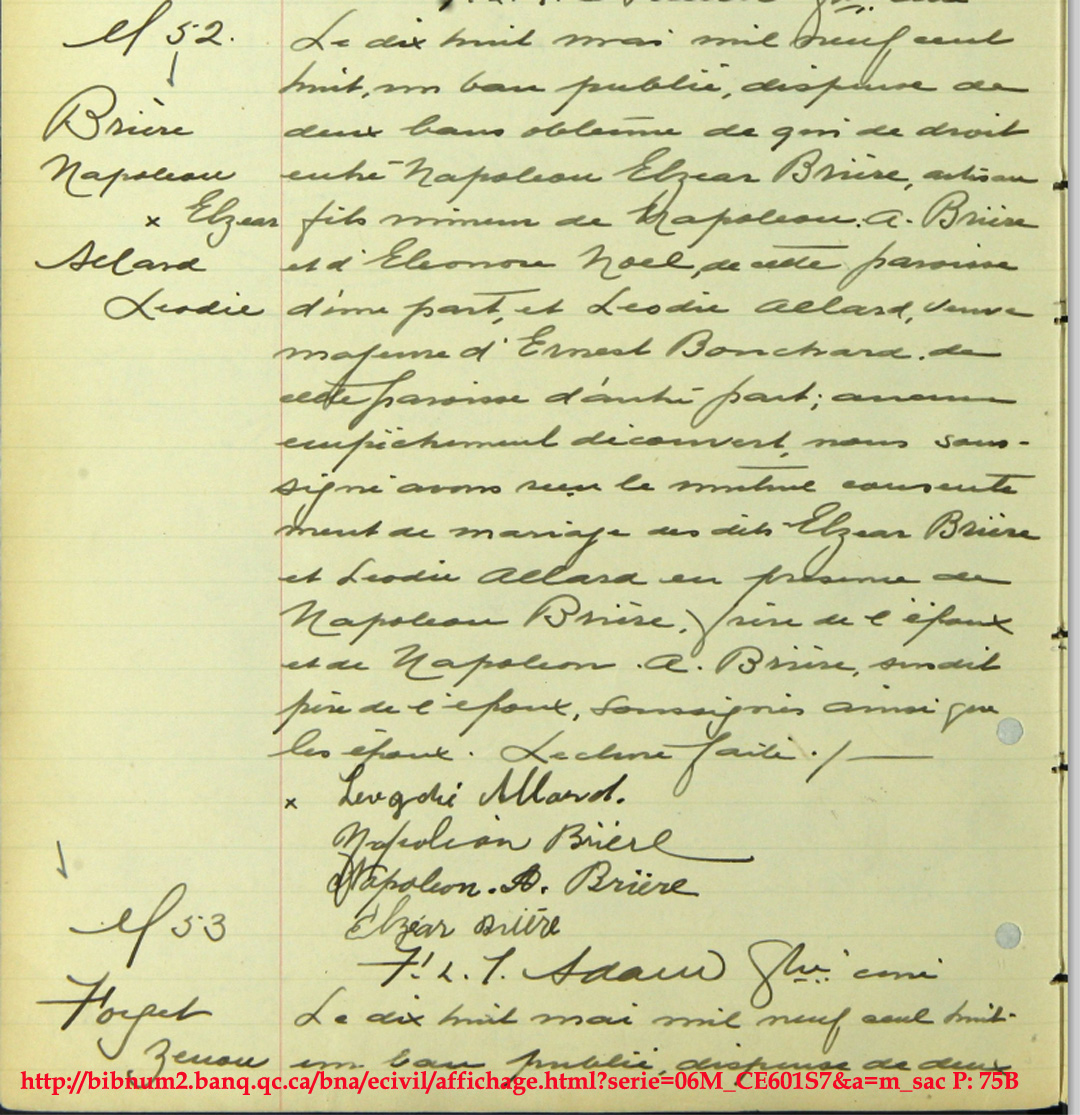 M 52.
Brière
Napoleon
x Elzear
Allard
Leodie
Le dix huit mai mil neuf cent
huit, un ban publié, dispense de
deux bans obtenue de qui de droit
entre Napoleon Elzear Brière, artisan
fils mineur de Napoleon. A. Brière
et d'Eleonore Noel, de cette paroisse
d'une part, et Leodie Allard, veuve
majeure d'Ernest Bouchard. de
cette paroisse d'autre part; aucun
empêchement découvert, nous sous-
signé avons reçu le mutuel consente
ment de mariage des dits Elzear Brière
et Leodie Allard en présence de
Napoleon Brière, frère de l'époux
et de Napoleon. A. Brière, susdit
père de l'époux, soussignés ainsi que
les époux. Lecture faite./—
x Allard.
Napoleon Brière
Napoleon. A. Brière
Elzéar Brière
F. L. T. Adam Ptre curé
M 53
Forget
Zenon
Le dix huit mai mil neuf cent huit-
un ban publié, dispense de deux
http://bibnum2.banq.qc.ca/bna/ecivil/affichage.html?serie=06M_CE601S7&a=m_sac P: 75B